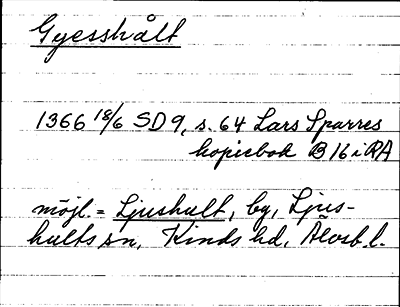 Gyesshålt
1366 18/6 SD 9, s. 64 Lars Sparres
kopiebok B 16 i RA
möjl. = Ljushult, by, Ljus-
hults sn, Kinds hd, Älvsb. l.